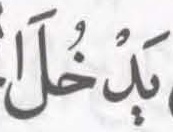 يَدْخُلَا